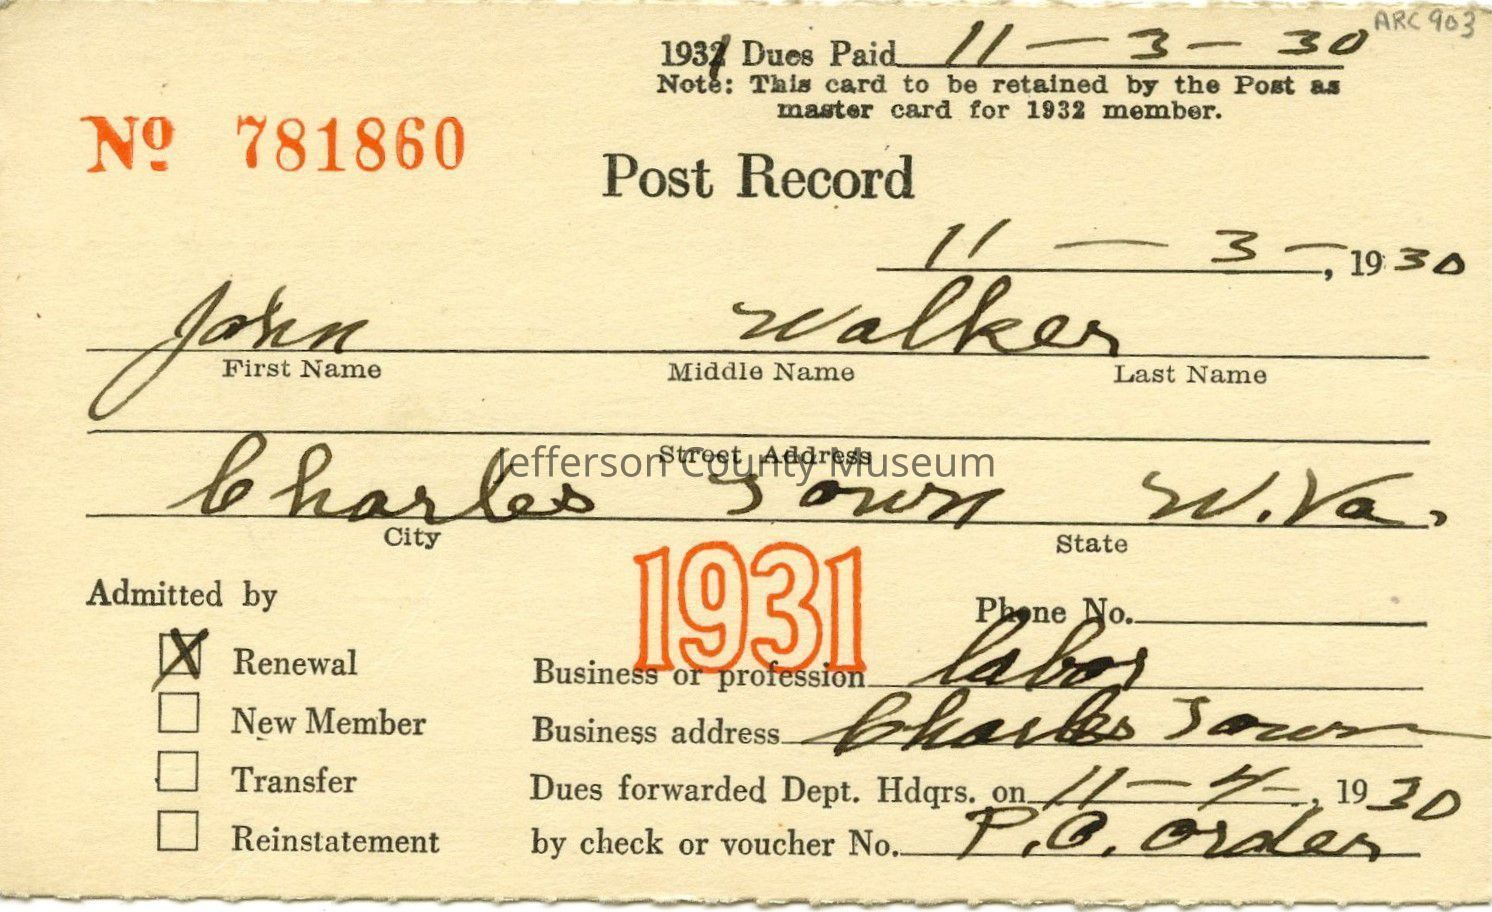 ARC 903
1931 Dues Paid 11 — 3 — 30
Note: This card to be retained by the Post as
master card for 1932 member.
No 781860
Post Record
11 — 3 —, 1930
John Walker
First Name Middle Name Last Name
Street Address
Jefferson County Museum
Charles Town W.Va.
City State
1931
Admitted by
Phone No.
X Renewal
Business or profession labor
New Member
Business address Charles Town
Transfer
Dues forwarded Dept. Hdqrs. on 11 — 4 —, 1930
Reinstatement
by check or voucher No. P.O. order